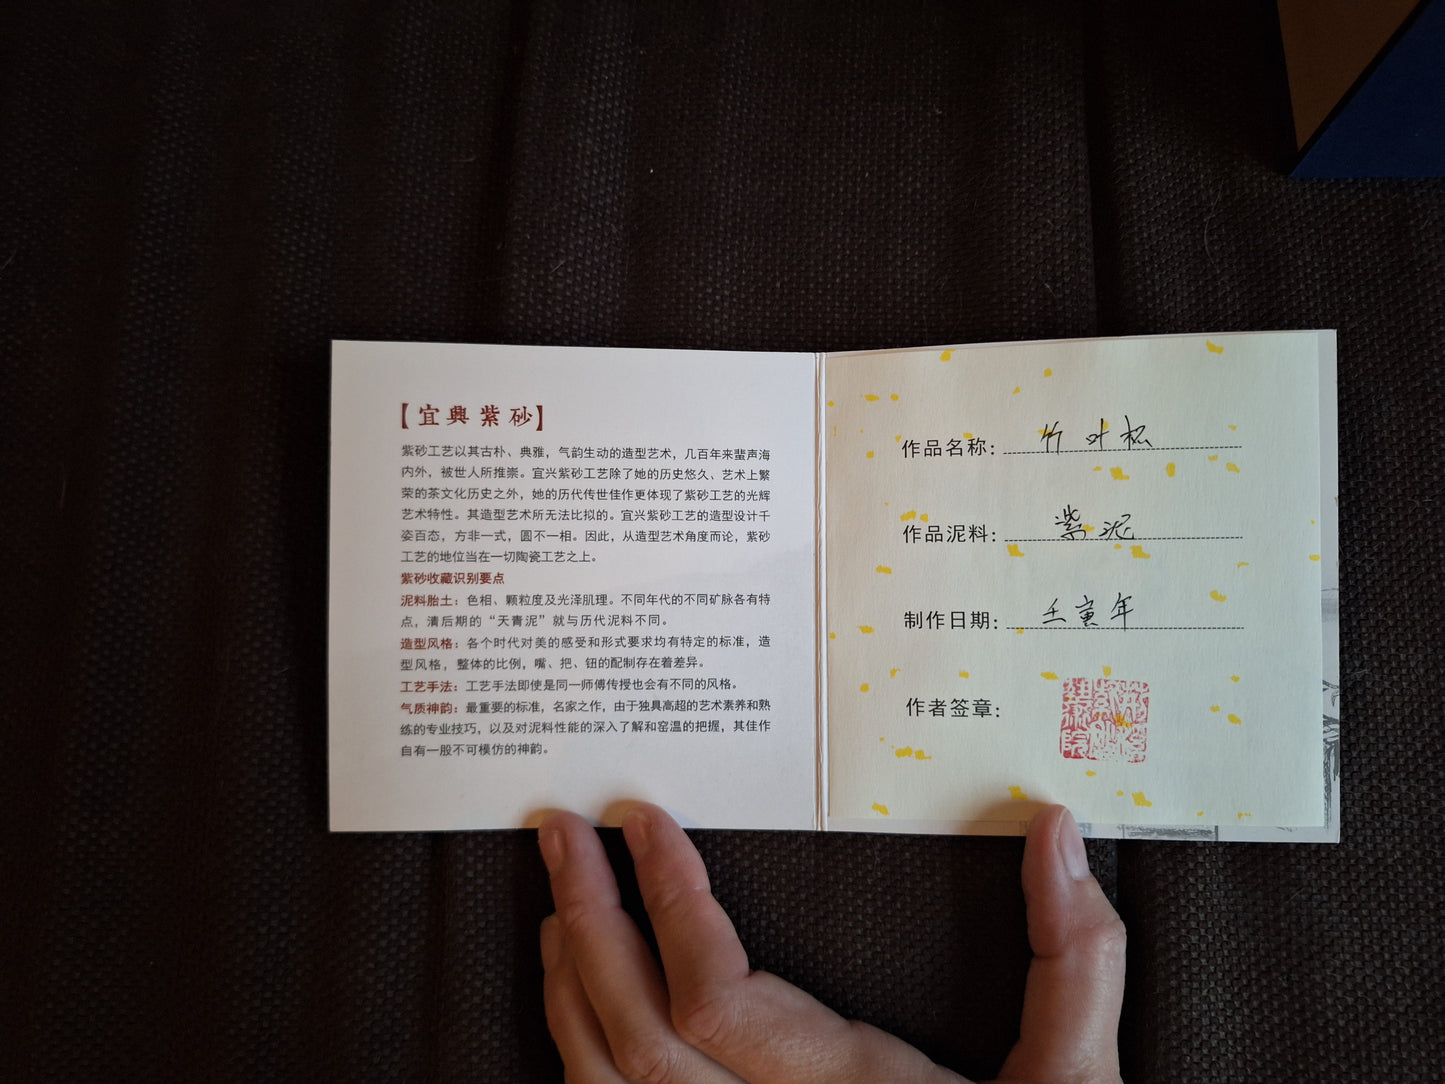 【宜興紫砂】
紫砂工艺以其古朴、典雅，气韵生动的造型艺术，几百年来蜚声海
内外，被世人所推崇。宜兴紫砂工艺除了她的历史悠久、艺术上繁
荣的茶文化历史之外，她的历代传世佳作更体现了紫砂工艺的光辉
艺术特性。其造型艺术所无法比拟的。宜兴紫砂工艺的造型设计千
姿百态，方非一式，圆不一相。因此，从造型艺术角度而论，紫砂
工艺的地位当在一切陶瓷工艺之上。
紫砂收藏识别要点
泥料胎土：色相、颗粒度及光泽肌理。不同年代的不同矿脉各有特
点，清后期的“天青泥”就与历代泥料不同。
造型风格：各个时代对美的感受和形式要求均有特定的标准，造
型风格，整体的比例，嘴、把、钮的配制存在着差异。
工艺手法：工艺手法即使是同一师傅传授也会有不同的风格。
气质神韵：最重要的标准，名家之作，由于独具高超的艺术素养和熟
练的专业技巧，以及对泥料性能的深入了解和窑温的把握，其佳作
自有一股不可模仿的神韵。
作品名称：竹叶杯
作品泥料：紫泥
制作日期：壬寅年
作者签章：